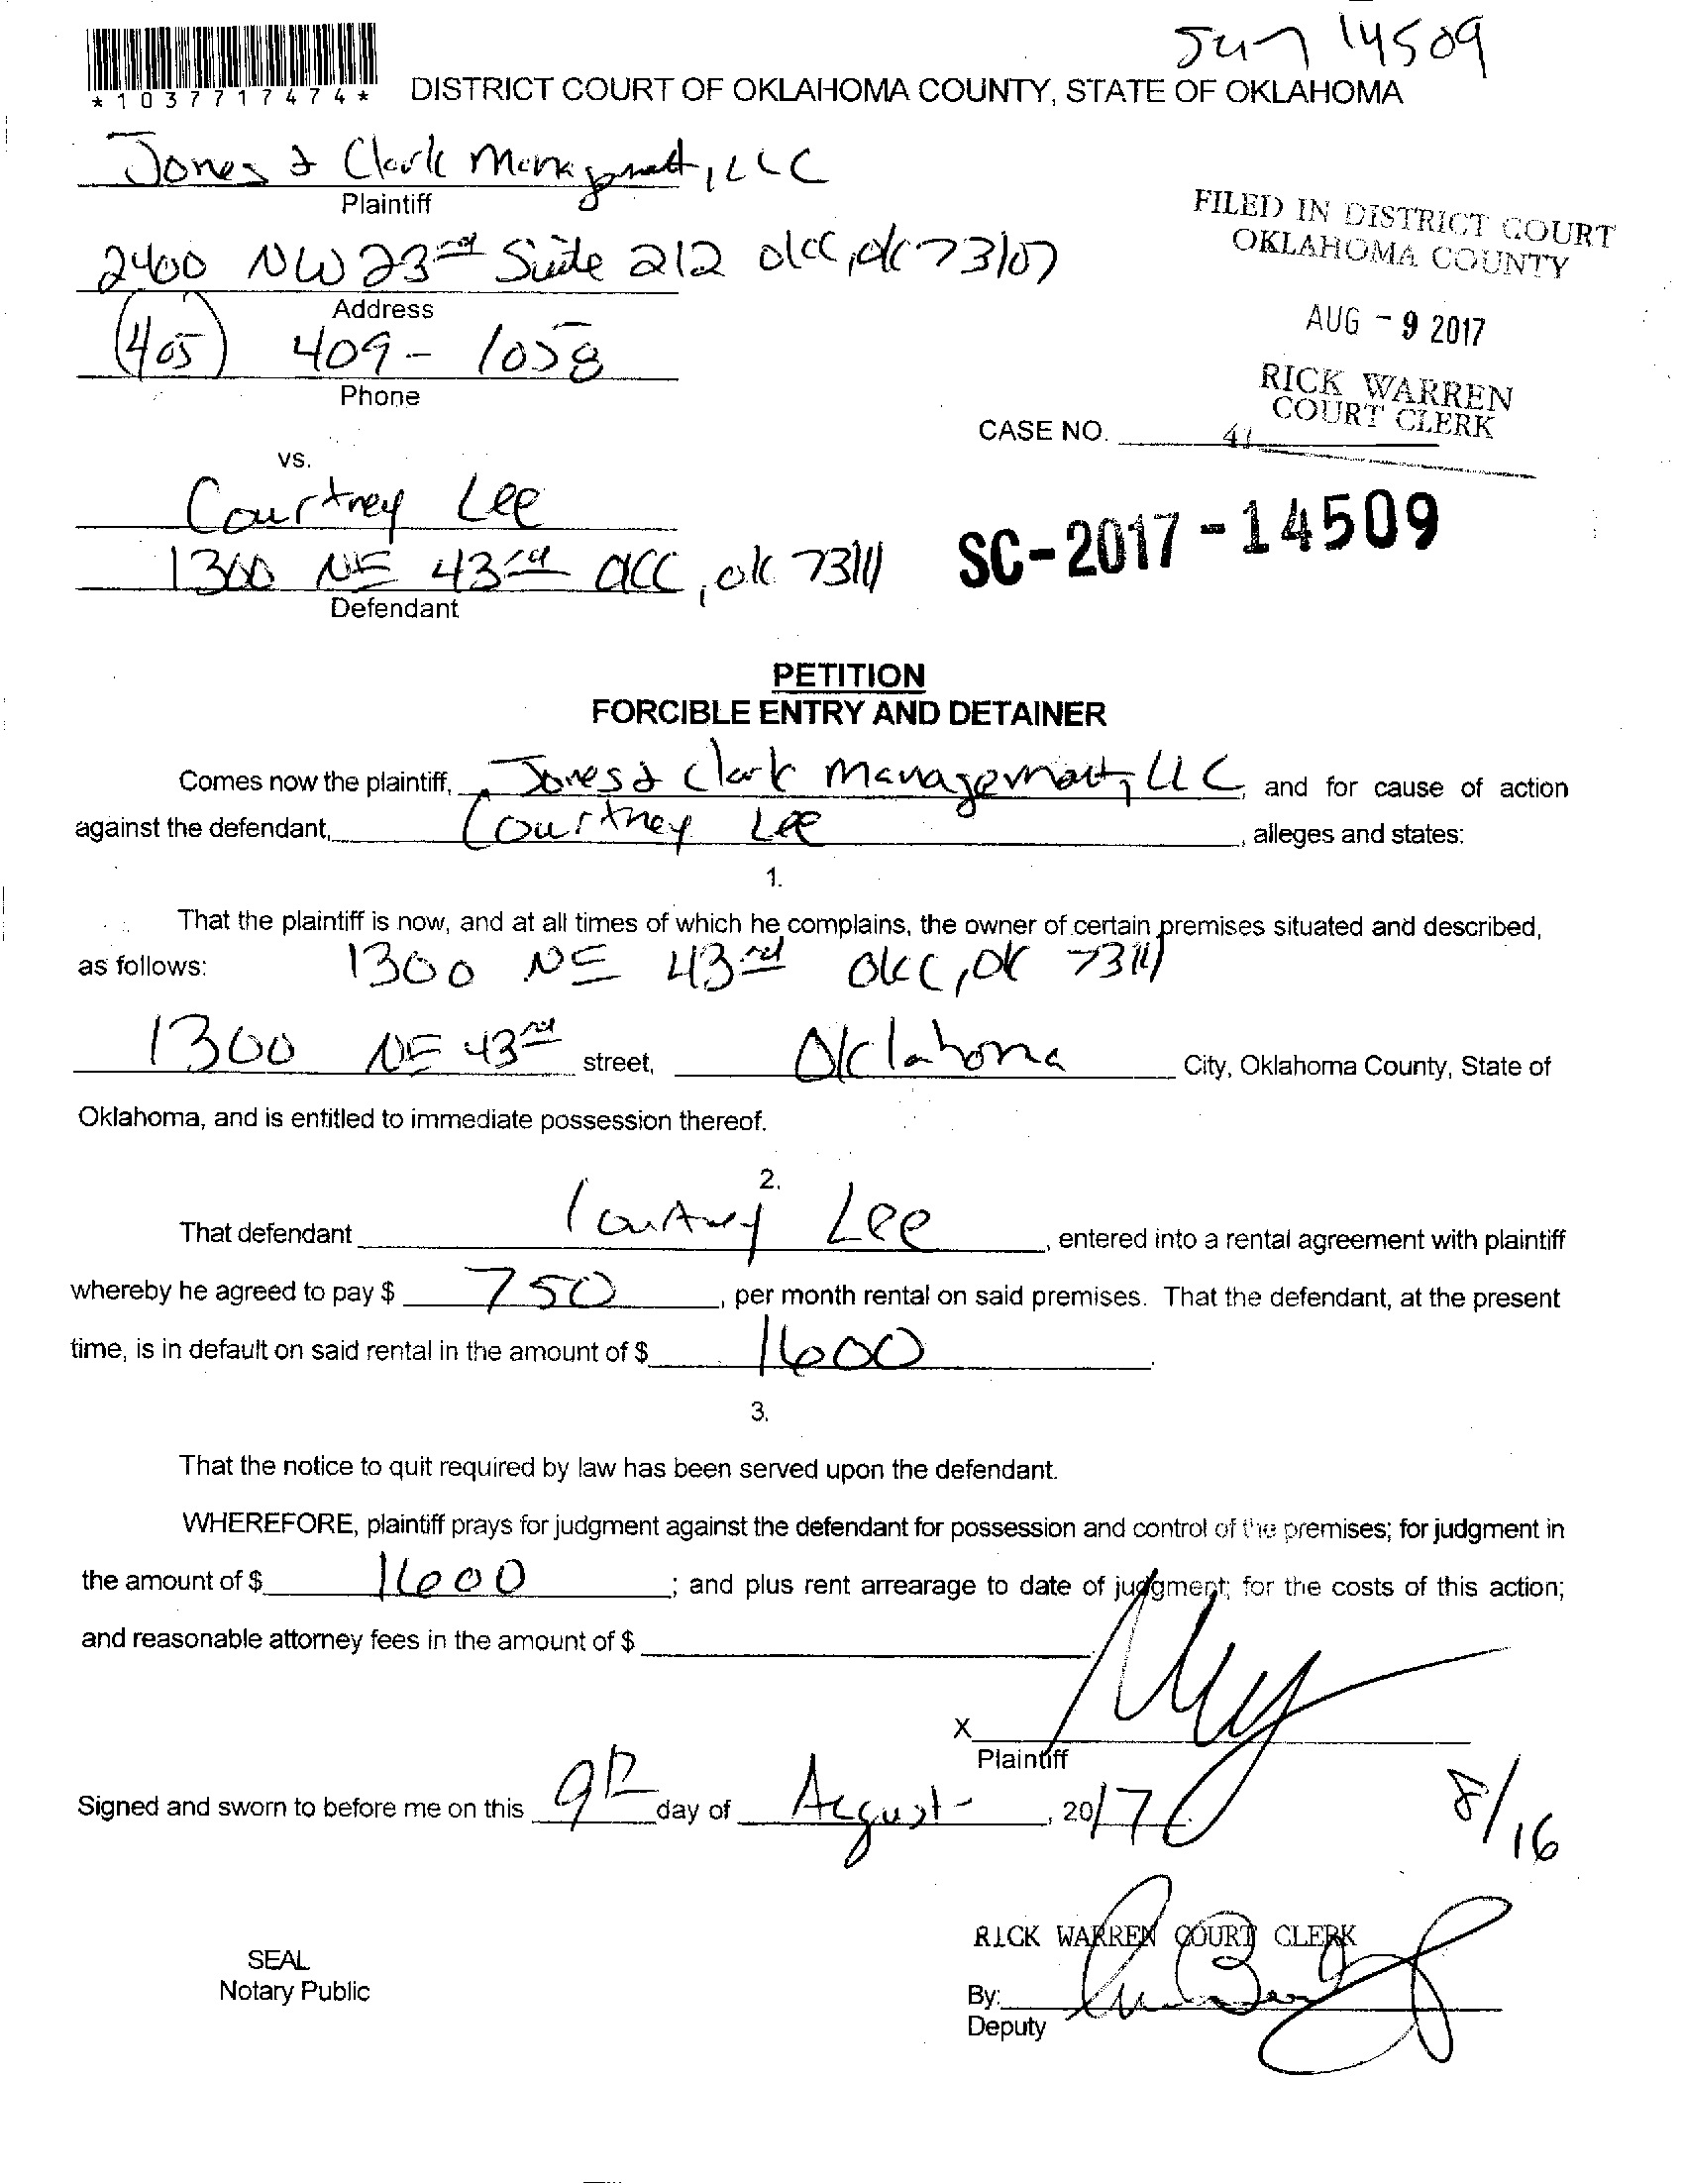 14509
*1037717474*
DISTRICT COURT OF OKLAHOMA COUNTY, STATE OF OKLAHOMA
Jones & Clark Management, LLC
Plaintiff
2400 NW 23rd Suite 212 OKC, OK 73107
Address
(405) 409-1058
Phone
FILED IN DISTRICT COURT
OKLAHOMA COUNTY
AUG - 9 2017
RICK WARREN
COURT CLERK
CASE NO.
41
vs.
Courtney Lee
1300 NE 43rd OKC, OK 73111
Defendant
SC-2017-14509
PETITION
FORCIBLE ENTRY AND DETAINER
Comes now the plaintiff, Jones & Clark Management, LLC, and for cause of action
against the defendant, Courtney Lee, alleges and states:
1.
That the plaintiff is now, and at all times of which he complains, the owner of certain premises situated and described,
as follows: 1300 NE 43rd OKC, OK 73111
1300 NE 43rd street, Oklahoma City, Oklahoma County, State of
Oklahoma, and is entitled to immediate possession thereof.
2.
That defendant Courtney Lee, entered into a rental agreement with plaintiff
whereby he agreed to pay $ 750, per month rental on said premises. That the defendant, at the present
time, is in default on said rental in the amount of $ 1600.
3.
That the notice to quit required by law has been served upon the defendant.
WHEREFORE, plaintiff prays for judgment against the defendant for possession and control of the premises; for judgment in
the amount of $ 1600; and plus rent arrearage to date of judgment; for the costs of this action;
and reasonable attorney fees in the amount of $
X
Plaintiff
Signed and sworn to before me on this 9th day of August, 2017.
8/16
RICK WARREN COURT CLERK
SEAL
Notary Public
By:
Deputy